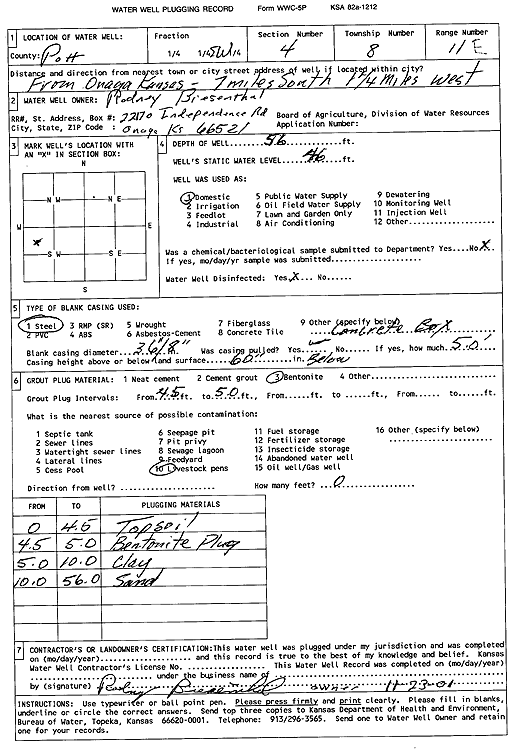 WATER WELL PLUGGING RECORD Form WWC-5P KSA 82a-1212
1 LOCATION OF WATER WELL: Fraction Section Number Township Number Range Number
County: Pott 1/4 1/4 SW 1/4 4 8 11 E
Distance and direction from nearest town or city street address of well if located within city?
From Onaga Kansas - 7 miles South 1 1/4 miles west
2 WATER WELL OWNER: Rodney Biesenthal
RR#, St. Address, Box #: 22170 Independence Rd Board of Agriculture, Division of Water Resources
City, State, ZIP Code : Onaga Ks 66521 Application Number:
3 MARK WELL'S LOCATION WITH AN "X" IN SECTION BOX:
N
N W N E
W E
X
S W S E
S
4 DEPTH OF WELL 56 ft.
WELL'S STATIC WATER LEVEL 46 ft.
WELL WAS USED AS:
1 Domestic 5 Public Water Supply 9 Dewatering
2 Irrigation 6 Oil Field Water Supply 10 Monitoring Well
3 Feedlot 7 Lawn and Garden Only 11 Injection Well
4 Industrial 8 Air Conditioning 12 Other
Was a chemical/bacteriological sample submitted to Department? Yes....No X
If yes, mo/day/yr sample was submitted
Water Well Disinfected: Yes X No
5 TYPE OF BLANK CASING USED:
1 Steel 3 RMP (SR) 5 Wrought 7 Fiberglass 9 Other (specify below)
2 PVC 4 ABS 6 Asbestos-Cement 8 Concrete Tile Concrete Box
Blank casing diameter 36"/8" Was casing pulled? Yes ✓ No If yes, how much 5.0'
Casing height above or below land surface 60" in. Below
6 GROUT PLUG MATERIAL: 1 Neat cement 2 Cement grout 3 Bentonite 4 Other
Grout Plug Intervals: From 4.5 ft. to 5.0 ft., From......ft. to......ft., From...... to......ft.
What is the nearest source of possible contamination:
1 Septic tank 6 Seepage pit 11 Fuel storage 16 Other (specify below)
2 Sewer lines 7 Pit privy 12 Fertilizer storage
3 Watertight sewer lines 8 Sewage lagoon 13 Insecticide storage
4 Lateral lines 9 Feedyard 14 Abandoned water well
5 Cess Pool 10 Livestock pens 15 Oil well/Gas well
Direction from well? How many feet? 0
FROM TO PLUGGING MATERIALS
0 4.5 Topsoil
4.5 5.0 Bentonite Plug
5.0 10.0 Clay
10.0 56.0 Sand
7 CONTRACTOR'S OR LANDOWNER'S CERTIFICATION: This water well was plugged under my jurisdiction and was completed
on (mo/day/year) and this record is true to the best of my knowledge and belief. Kansas
Water Well Contractor's License No. This Water Well Record was completed on (mo/day/year)
under the business name of
by (signature) Rodney Biesenthal owner 11-23-01
INSTRUCTIONS: Use typewriter or ball point pen. Please press firmly and print clearly. Please fill in blanks,
underline or circle the correct answers. Send top three copies to Kansas Department of Health and Environment,
Bureau of Water, Topeka, Kansas 66620-0001. Telephone: 913/296-3565. Send one to Water Well Owner and retain
one for your records.